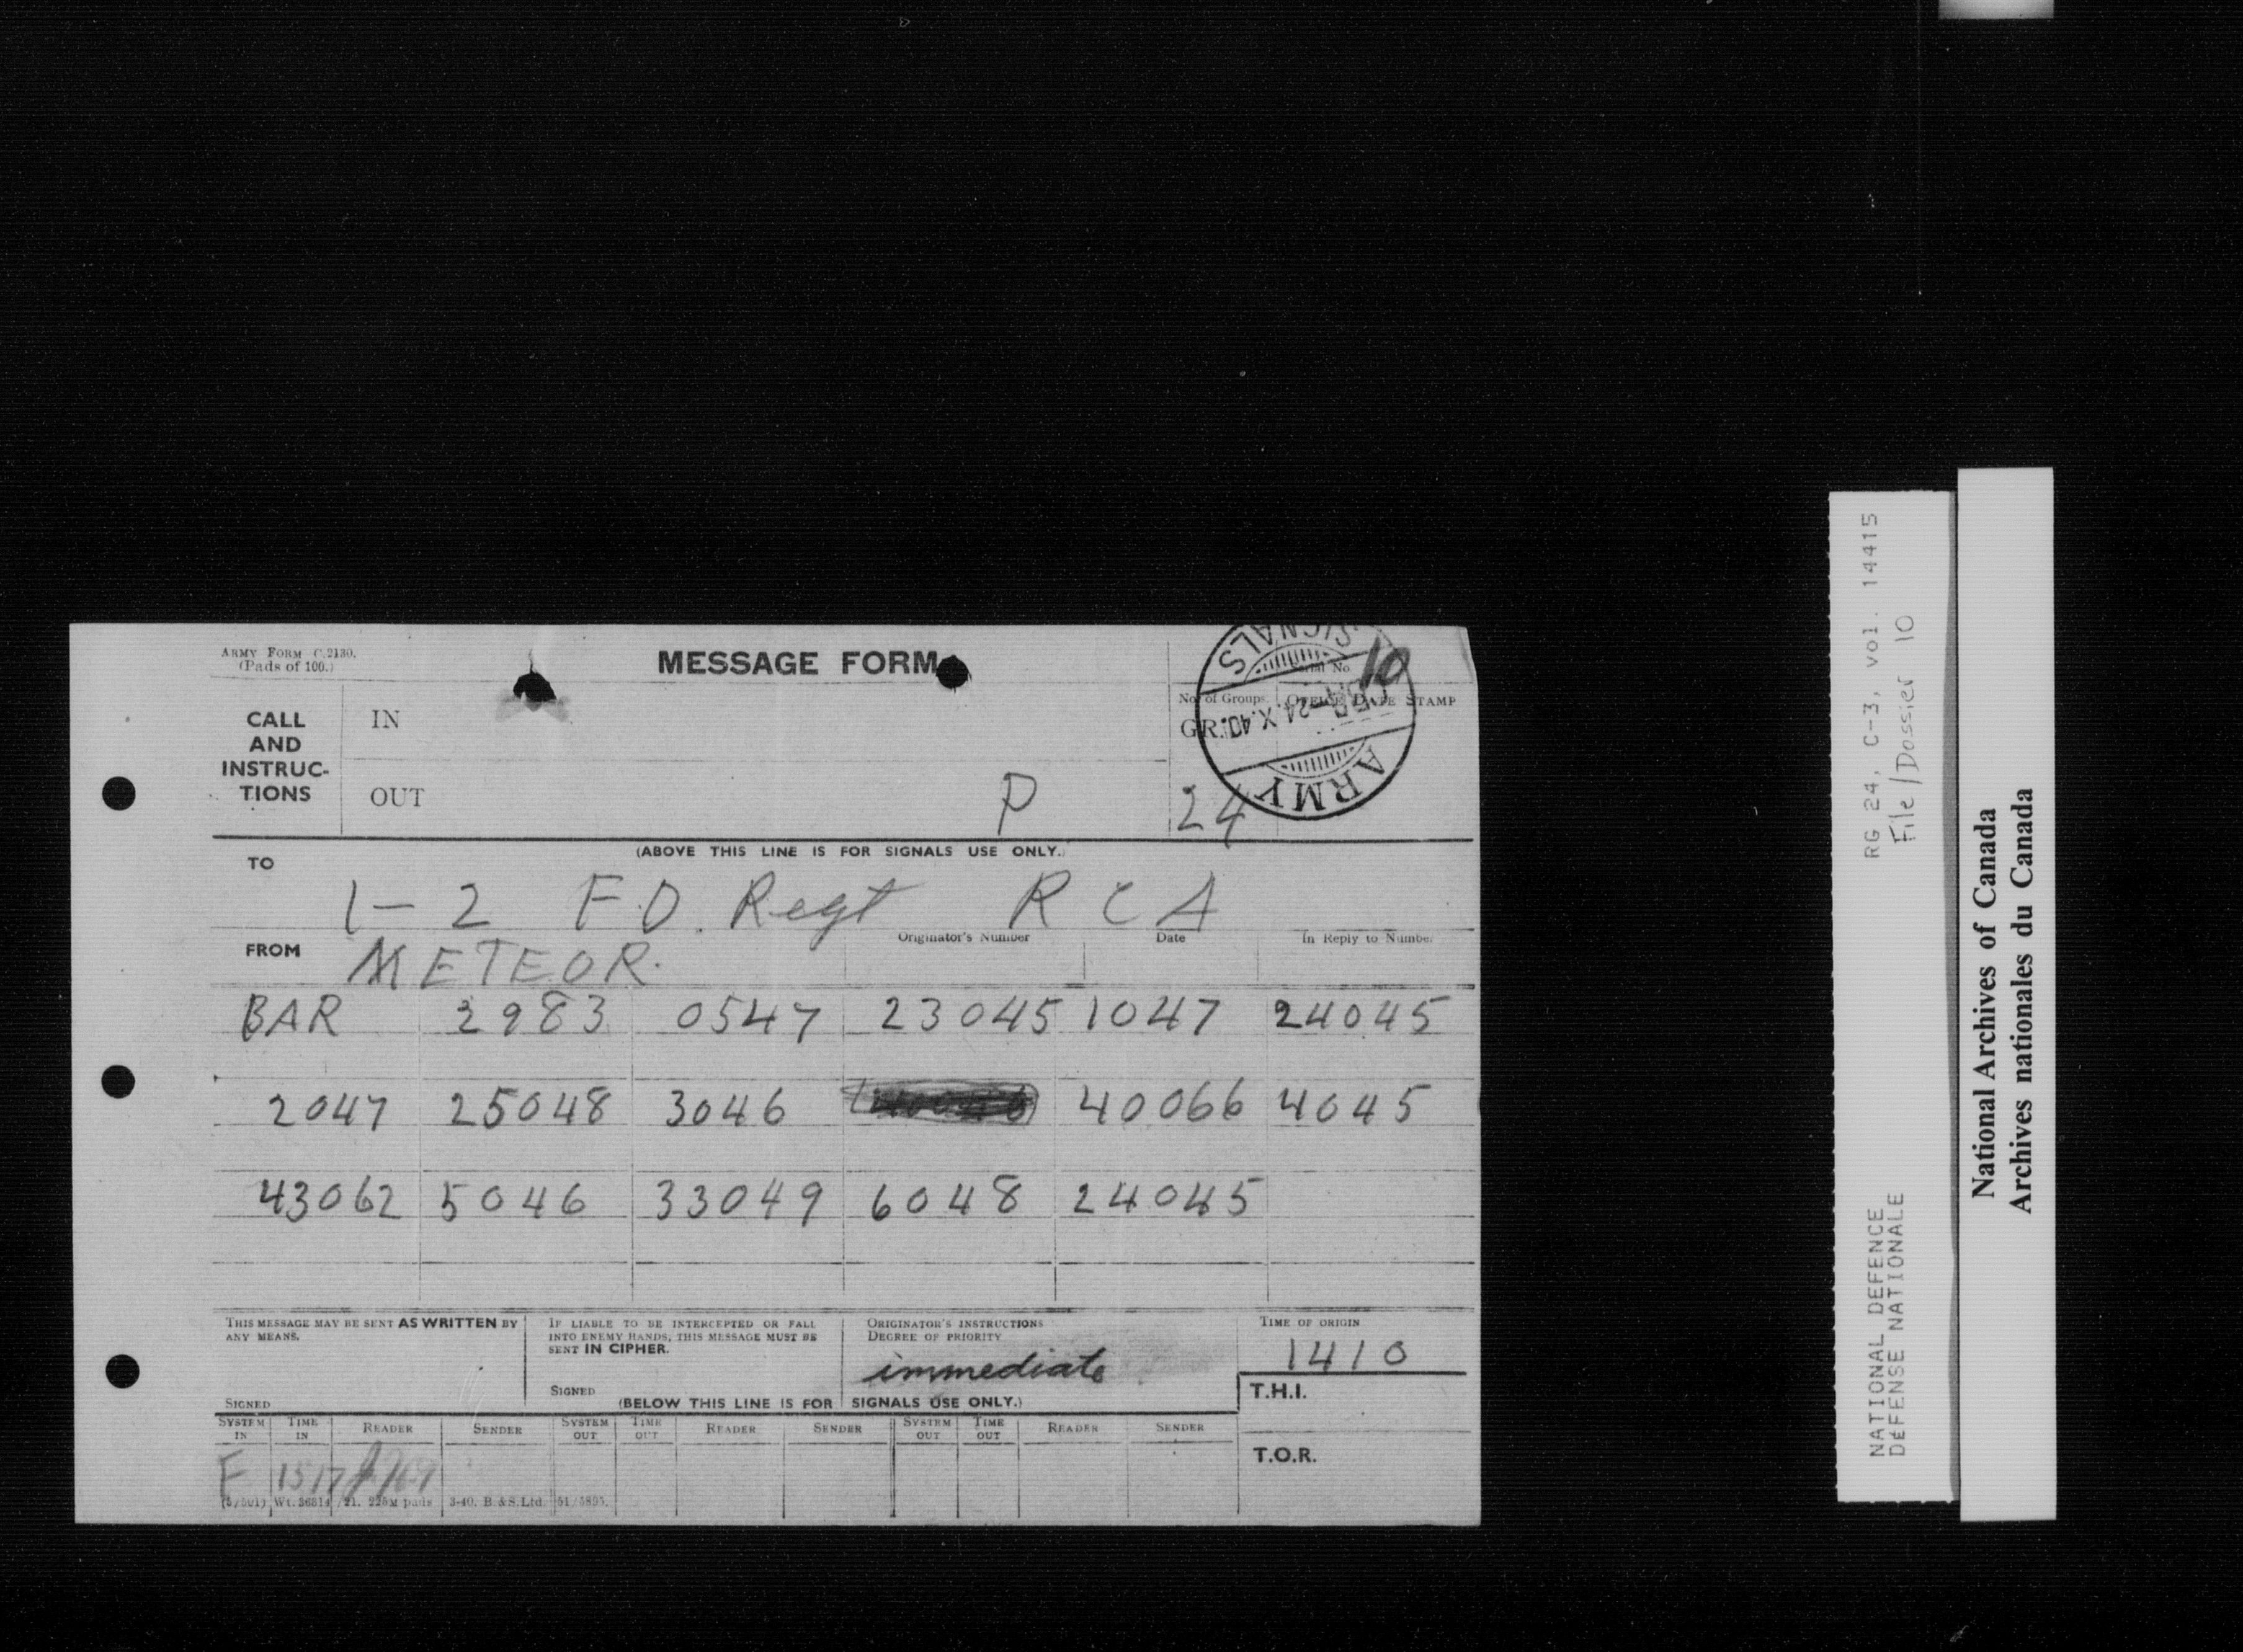 ARMY FORM C.2130.
(Pads of 100.)
MESSAGE FORM
Serial No.
10
CALL AND INSTRUC-TIONS
IN
OUT
P
No. of Groups.
GR.
24
OFFICE DATE STAMP
ARMY SIGNALS
24.X.40
(ABOVE THIS LINE IS FOR SIGNALS USE ONLY.)
TO
1-2 F.D. Regt R C A
FROM METEOR.
Originator's Number Date In Reply to Number
BAR 2983 0547 23045 1047 24045
2047 25048 3046 40066 4045
43062 5046 33049 6048 24045
THIS MESSAGE MAY BE SENT AS WRITTEN BY
ANY MEANS.
SIGNED
IF LIABLE TO BE INTERCEPTED OR FALL
INTO ENEMY HANDS, THIS MESSAGE MUST BE
SENT IN CIPHER.
SIGNED
ORIGINATOR'S INSTRUCTIONS
DEGREE OF PRIORITY
immediate
TIME OF ORIGIN
1410
T.H.I.
T.O.R.
(BELOW THIS LINE IS FOR SIGNALS USE ONLY.)
SYSTEM IN TIME IN READER SENDER SYSTEM OUT TIME OUT READER SENDER SYSTEM OUT TIME OUT READER SENDER
F 1517
Wt. 36814 /21. 225M pads 3-40. B.&S.Ltd.
RG 24, C-3, vol. 14415
File/Dossier 10
NATIONAL DEFENCE
DÉFENSE NATIONALE
National Archives of Canada
Archives nationales du Canada